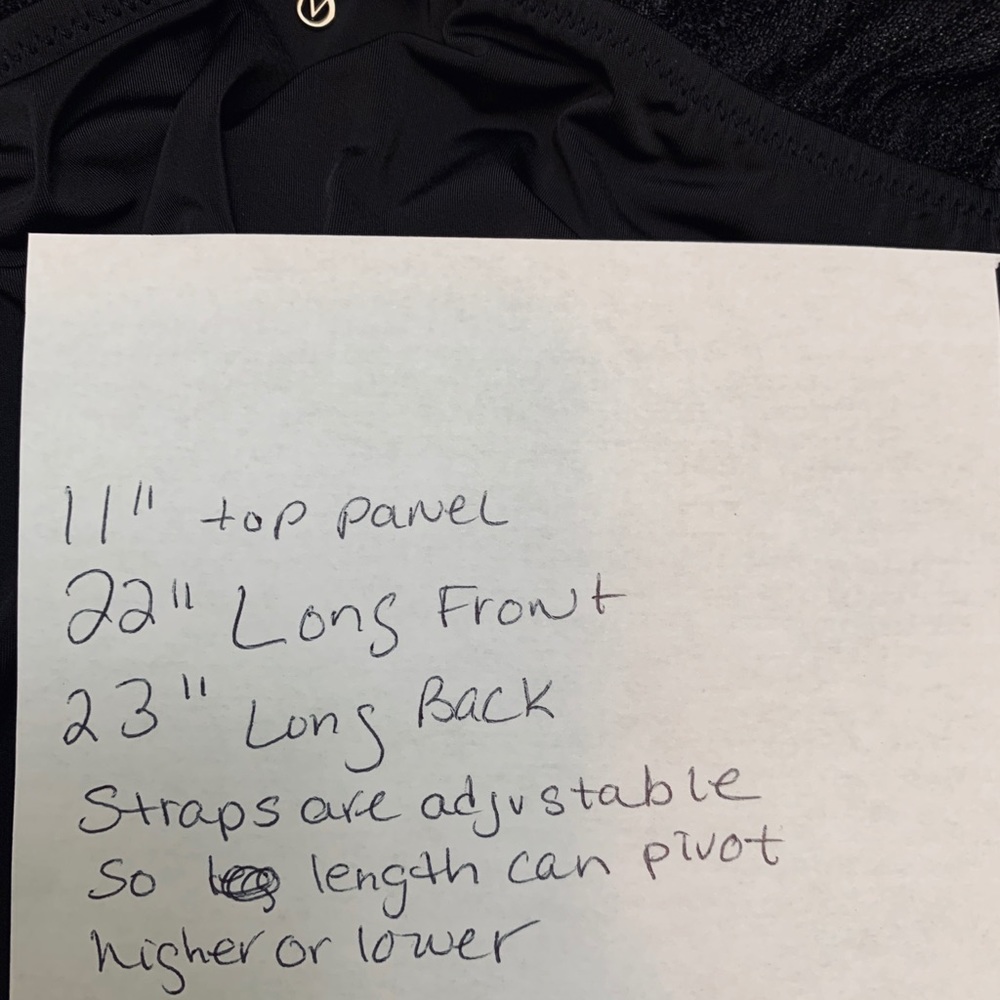 11" top panel
22" Long Front
23" Long Back
Straps are adjustable
so length can pivot
higher or lower